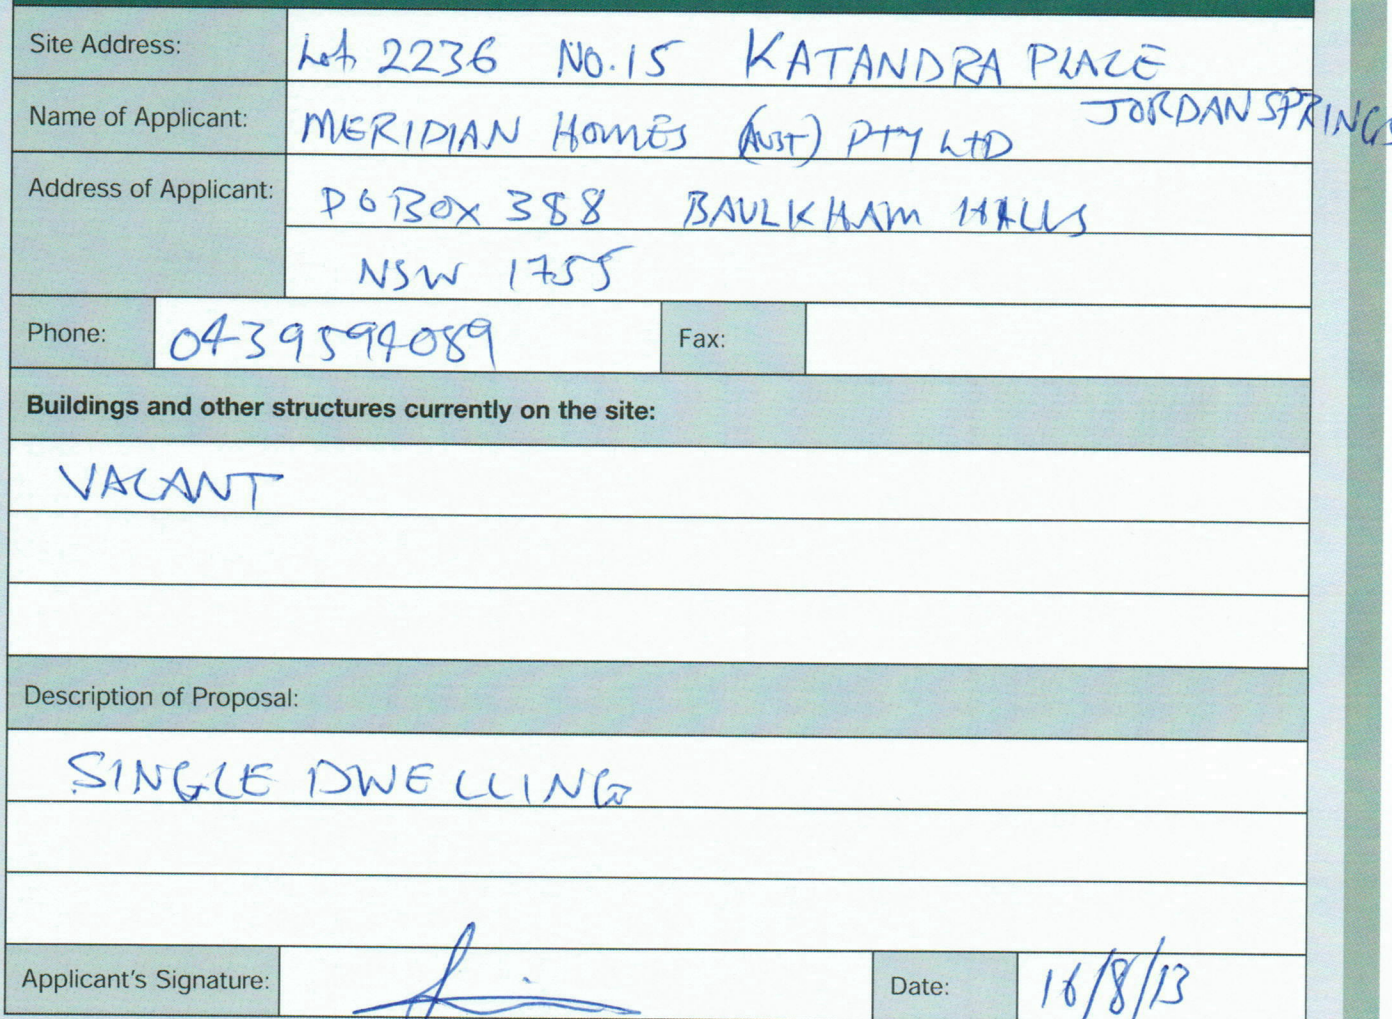 Site Address: Lot 2236 No.15 KATANDRA PLACE
JORDAN SPRINGS
Name of Applicant: MERIDIAN HOMES (AUST) PTY LTD
Address of Applicant: PO BOX 388 BAULKHAM HILLS
NSW 1755
Phone: 0439594089 Fax:
Buildings and other structures currently on the site:
VACANT
Description of Proposal:
SINGLE DWELLING
Applicant's Signature: Date: 16/8/13